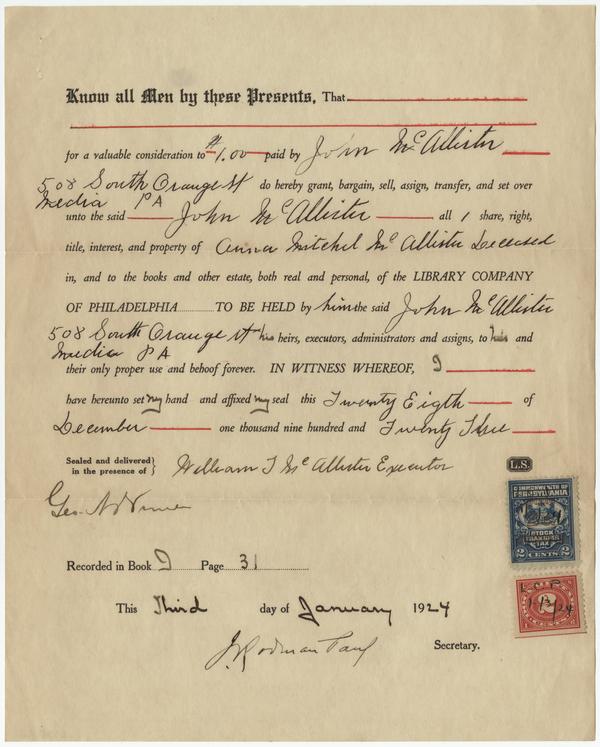 Know all Men by these Presents, That
for a valuable consideration to $1.00 paid by John McAllister
508 South Orange St do hereby grant, bargain, sell, assign, transfer, and set over
Media PA
unto the said John McAllister all 1 share, right,
title, interest, and property of Anna Mitchel McAllister Deceased
in, and to the books and other estate, both real and personal, of the LIBRARY COMPANY
OF PHILADELPHIA TO BE HELD by him the said John McAllister
508 South Orange St his heirs, executors, administrators and assigns, to and
Media PA
their only proper use and behoof forever. IN WITNESS WHEREOF, I
have hereunto set my hand and affixed my seal this Twenty Eigth of
December one thousand nine hundred and Twenty Three
Sealed and delivered
in the presence of } William T McAllister Executor
L.S.
Geo.
COMMONWEALTH OF
PENNSYLVANIA
STOCK
TRANSFER
TAX
2 CENTS. 2
Recorded in Book I Page 31
L.C.P.
This Third day of January 1924
J Rodman Paul Secretary.